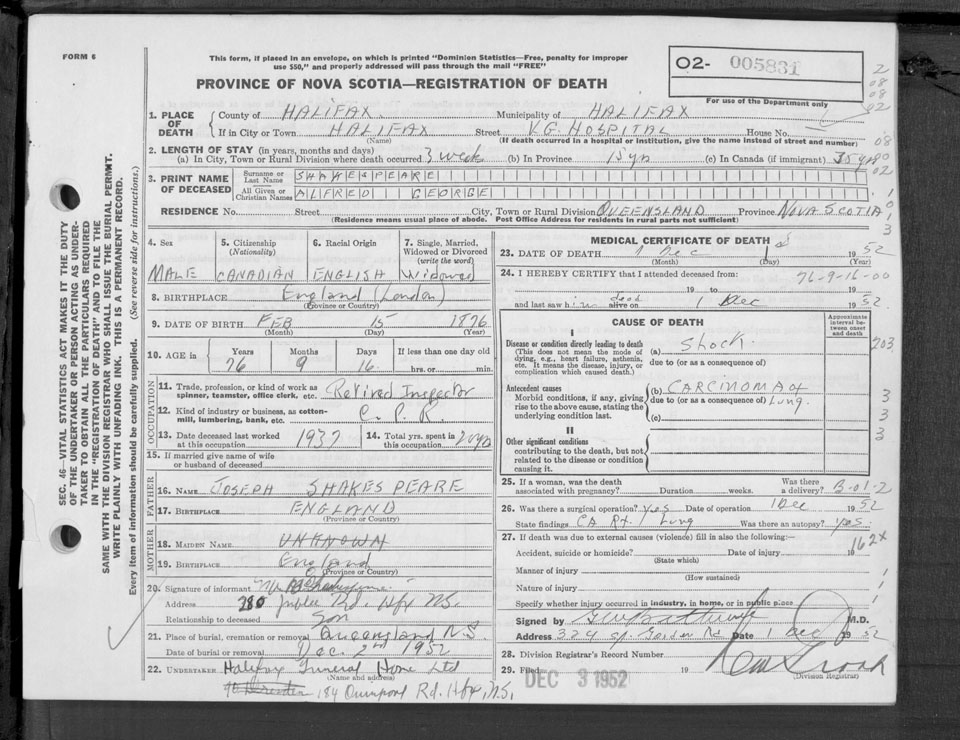 FORM 6
This form, if placed in an envelope, on which is printed "Dominion Statistics—Free, penalty for improper
use $50," and properly addressed will pass through the mail "FREE"
PROVINCE OF NOVA SCOTIA—REGISTRATION OF DEATH
O2- 005831
For use of the Department only
1. PLACE OF DEATH
County of HALIFAX. Municipality of HALIFAX
If in City or Town HALIFAX Street V.G. HOSPITAL House No.
(Name) (If death occurred in a hospital or institution, give the name instead of street and number)
2. LENGTH OF STAY (in years, months and days)
(a) In City, Town or Rural Division where death occurred 3 week (b) In Province 15 yrs (c) In Canada (if immigrant) 35 yrs
3. PRINT NAME OF DECEASED
Surname or Last Name SHAKESPEARE
All Given or Christian Names ALFRED GEORGE
RESIDENCE No. Street City, Town or Rural Division QUEENSLAND Province NOVA SCOTIA
(Residence means usual place of abode. Post Office Address for residents in rural parts not sufficient)
SEC. 46—VITAL STATISTICS ACT MAKES IT THE DUTY
OF THE UNDERTAKER OR PERSON ACTING AS UNDER-
TAKER TO OBTAIN ALL THE PARTICULARS REQUIRED
IN THE "REGISTRATION OF DEATH" AND TO FILE THE
SAME WITH THE DIVISION REGISTRAR WHO SHALL ISSUE THE BURIAL PERMIT.
WRITE PLAINLY WITH UNFADING INK. THIS IS A PERMANENT RECORD.
Every item of information should be carefully supplied. (See reverse side for instructions.)
4. Sex MALE
5. Citizenship (Nationality) CANADIAN
6. Racial Origin ENGLISH
7. Single, Married, Widowed or Divorced (write the word) Widowed
8. BIRTHPLACE England (London)
(Province or Country)
9. DATE OF BIRTH FEB 15 1876
(Month) (Day) (Year)
10. AGE in Years 76 Months 9 Days 16 If less than one day old hrs. or min.
OCCUPATION
11. Trade, profession, or kind of work as spinner, teamster, office clerk, etc. Retired Inspector
12. Kind of industry or business, as cotton-mill, lumbering, bank, etc. C.P.R.
13. Date deceased last worked at this occupation 1937 14. Total yrs. spent in this occupation 20 yrs
15. If married give name of wife
or husband of deceased
FATHER
16. NAME JOSEPH SHAKESPEARE
17. BIRTHPLACE ENGLAND
(Province or Country)
MOTHER
18. MAIDEN NAME UNKNOWN
19. BIRTHPLACE England
(Province or Country)
20. Signature of informant
Address 280 Jubilee Rd. Hfx N.S.
Relationship to deceased Son
21. Place of burial, cremation or removal Queensland N.S.
Date of burial or removal Dec. 2nd 1952
22. UNDERTAKER Halifax Funeral Home Ltd
(Name and address)
184 Quinpool Rd. Hfx N.S.
MEDICAL CERTIFICATE OF DEATH
23. DATE OF DEATH 1 Dec 1952
(Month) (Day) (Year)
24. I HEREBY CERTIFY that I attended deceased from: 76-9-16-00
19 to 19
and last saw him dead alive on 1 Dec 1952
CAUSE OF DEATH
Approximate interval between onset and death
I
Disease or condition directly leading to death (a) Shock
(This does not mean the mode of dying, e.g., heart failure, asthenia, etc. It means the disease, injury, or complication which caused death.)
due to (or as a consequence of) 203
Antecedent causes (b) CARCINOMA of
Morbid conditions, if any, giving rise to the above cause, stating the underlying condition last.
due to (or as a consequence of) Lung.
(c)
II
Other significant conditions
contributing to the death, but not related to the disease or condition causing it.
25. If a woman, was the death associated with pregnancy? Duration weeks. Was there a delivery? B-01-2
26. Was there a surgical operation? yes Date of operation 1 Dec 1952
State findings CA Rt. Lung Was there an autopsy? yes.
27. If death was due to external causes (violence) fill in also the following:—
162x
Accident, suicide or homicide? Date of injury 19
(State which)
Manner of injury
(How sustained)
Nature of injury
Specify whether injury occurred in industry, in home, or in public place
Signed by M.D.
Address 324 Sp. Garden Rd Date 1 Dec 1952
28. Division Registrar's Record Number
29. Filed DEC 3 1952 19
(Division Registrar)